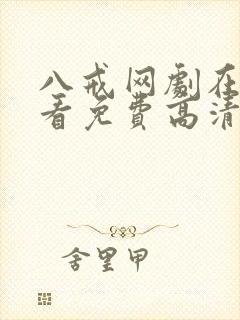 八戒网劇在
看免費高清
舍里甲